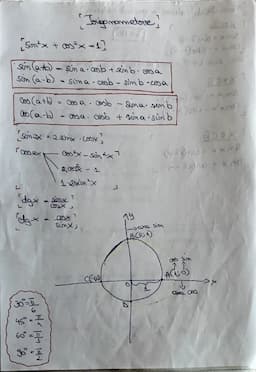 [sin²x + cos²x = 1]
sin(a+b) = sin a · cos b + sin b · cos a
sin(a-b) = sin a · cos b - sin b · cos a
cos(a+b) = cos a · cos b - sin a · sin b
cos(a-b) = cos a · cos b + sin a · sin b
[sin2x = 2 sinx · cosx]
cos2x
cos²x - sin²x
2cos²x - 1
1-2sin²x
tgx = sinx/cosx
ctgx = cosx/sinx
y
B(0,1)
A(1,0)
x
0
D
30° = π/6
45° = π/4
60° = π/3
90° = π/2